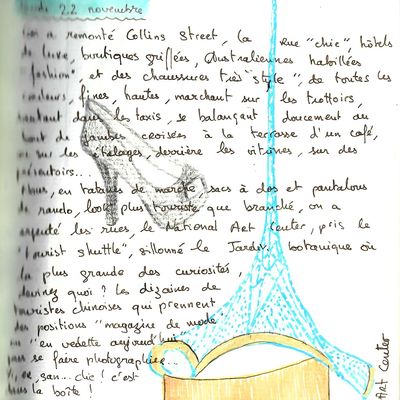 22 novembre
a remonté Collins Street, la rue "chic", hôtels
de luxe, boutiques griffées, Australiennes habillées
"fashion", et des chaussures très "style", de toutes les
couleurs, fines, hautes, marchant sur les trottoirs,
dans les taxis, se balançant doucement au
bout de jambes croisées à la terrasse d'un café,
ou sur les étalages, derrière les vitrines, sur des
présentoirs...
en tabanes de marche, sacs à dos et pantalons
de rando, look plus touriste que branché, on a
arpenté les rues, le National Art Center, pris le
"tourist shuttle", sillonné le Jardin botanique où
la plus grande des curiosités,
devinez quoi ? les dizaines de
touristes chinoises qui prennent
des positions "magazine de mode
"en vedette aujourd'hui"
se faire photographier...
san... chic ! c'est
dans la boîte !
Art Center